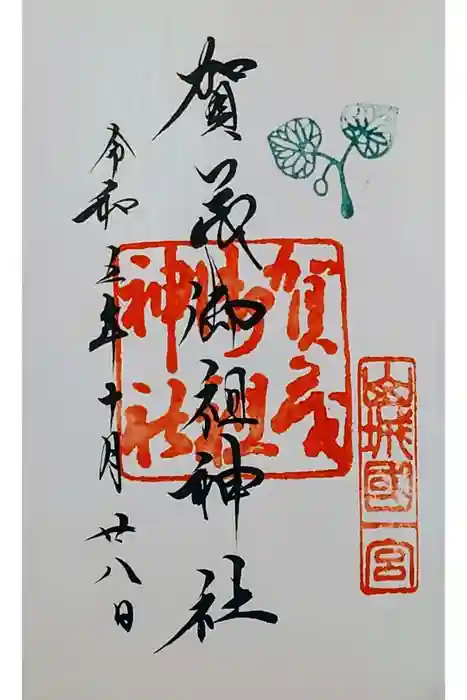 山城國一宮
賀茂御祖神社
賀茂
御祖
神社
令和五年十月廿八日